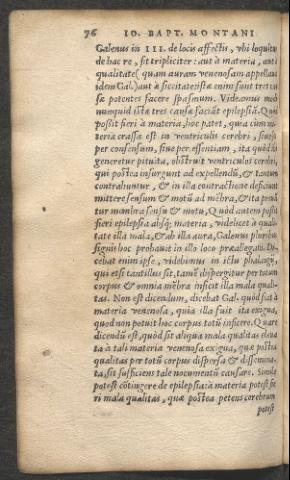 76 IO. BAPT. MONTANI
Galenus in III. de locis affectis, vbi loquitur
de hac re, sit tripliciter: aut à materia, aut à
qualitate (quam auram venenosam appellauit
idem Gal.) aut à siccitate: istæ enim sunt tres cau
sæ potentes facere spasmum. Videamus modo
nunquid istæ tres causæ faciãt epilepsiã. Quod
possit fieri à materia, hoc patet, quia cùm ma-
teria crassa est in ventriculis cerebri, siue sit
per consensum, siue per essentiam, ita quòd ibi
generetur pituita, obstruit ventriculos cerebri,
qui postea insurgunt ad expellendũ, & tantum
contrahuntur, & in illa contractione deficiunt
mittere sensum & motũ ad mẽbra, & ita priuã
tur membra sensu & motu. Quòd autem possit
fieri epilepsia absq; materia, videlicet à quali-
tate illa mala, & ab illa aura, Galenus pluribus
signis hoc probauit in illo loco præallegato. Di-
cebat enim ipse, videbimus in ictu phalangij,
qui etsi tantillus sit, tamẽ dispergitur per totum
corpus & omnia mẽbra inficit illa mala quali-
tas. Non est dicendum, dicebat Gal. quòd sit à
materia venenosa, quia illa fuit ita exigua,
quod non potuit hoc corpus totũ inficere. Quare
dicendũ est, quòd sit aliqua mala qualitas eleua
ta à tali materia venenosa exigua, quæ postea
qualitas per totũ corpus dispersa & dissemina-
ta, sit sufficiens tale nocumentũ causare. Simile
potest cõtingere de epilepsia: à materia potest fie
ri mala qualitas, quæ postea petens cerebrum
potest